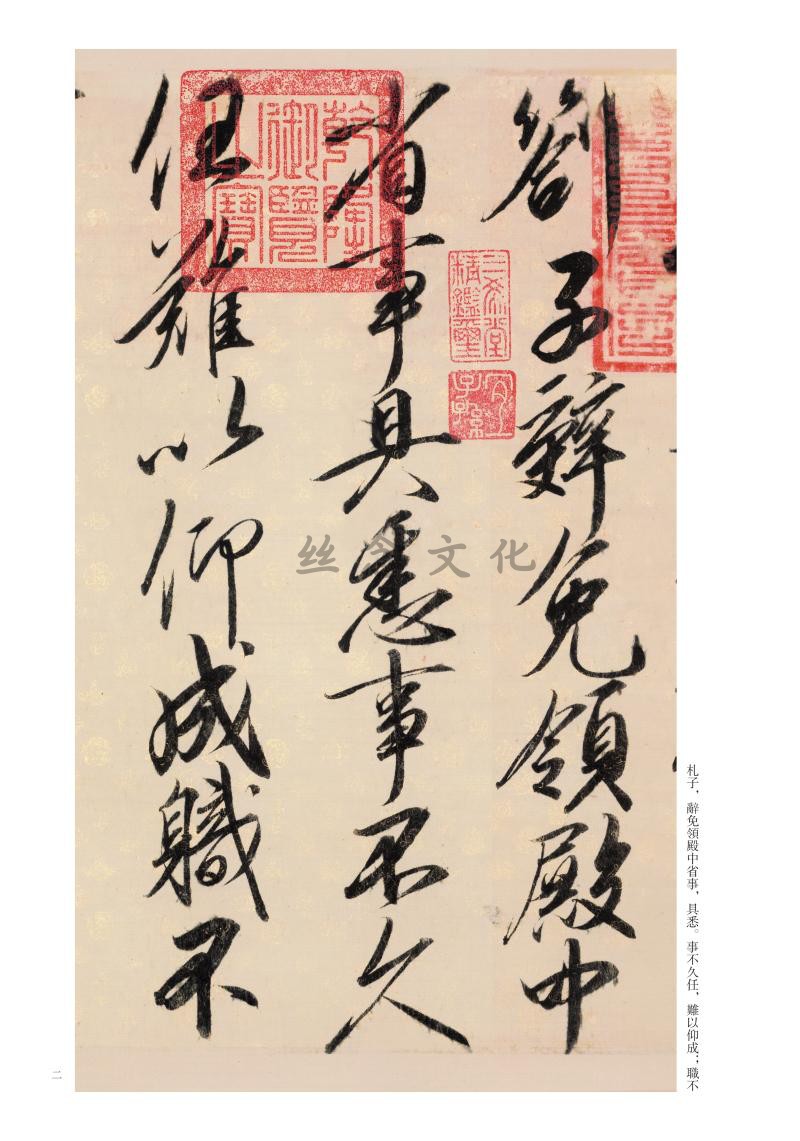 劄子辭免領殿中
省事具悉事不久
任難以仰成職不
乾隆御覽之寶
三希堂精鑑璽
宜子孫
札子，辭免領殿中省事，具悉。事不久任，難以仰成；職不
二